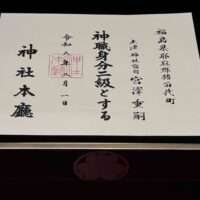 福島県耶麻郡猪苗代町
土津神社宮司
宮澤重嗣
神職身分二級とする
令和八年二月一日
神社本廳